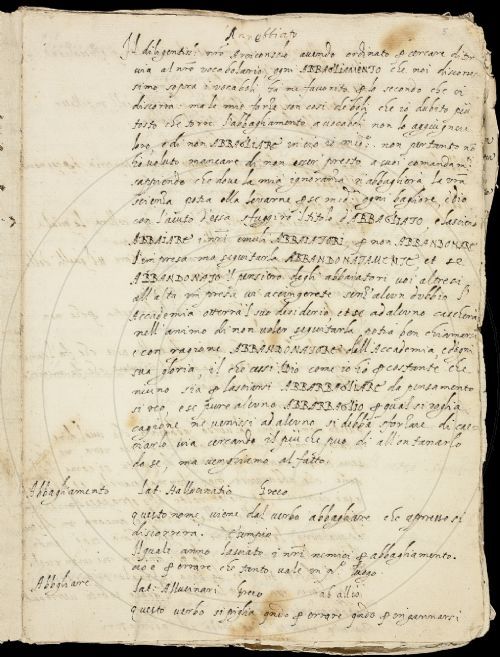 Rabbiato
Il diligentiss. nro Arciconsolo avendo ordinato
via al nro vocabolario ogni ABBAGLIAMENTO che noi discorre-
simo sopra i vocaboli
discorso. ma le mie forze son così debili che io dubito più
tosto che torre l'abbagliamento a vocaboli non lo aggiugnera
loro, e di non ABBAGLIARE non pertanto nō
ho voluto mancare di non esser presto a voi comandam.
sappiendo che dove la mia ignoranza abbaglierà la vrā
scienzia potrà ogni bagliore, e io
con l'aiuto d'essa il titolo d'ABBAGLIATO, e lasciero
ABBAIARE i nri emuli ABBAIATORI, e non ABBANDONARE
l'impresa ma seguitarla ABBANDONATAMENTE et se
ABBANDONATO il pensiero degli abbaiatori voi altresi
all'alta impresa vi accingerete senz'alcun dubbio l'
Accademia otterrà l suo desiderio, et se ad alcuno cascherà
nell'animo di non voler seguitarla potrà ben chiamarsi
e con ragione ABBANDONATORE dell'Accademia e d'ogni
sua gloria, il che cessi Dio come io ho p costante che
niuno sia p lasciarsi ABBARBAGLIARE da pensamento
si reo, e se pure alcuno ABBARBAGLIO p qual si voglia
cagione ne venissi ad alcuno si debba sforzare di cac-
ciarlo via cercando il più che può di allontanarlo
da se, ma venghiamo al fatto.
Abbagliamento Lat. Hallucinatio Greco
questo nome viene dal verbo abbagliare che appresso si
discorrera. Esempio
Il quale anno lasciato i nri nemici p abbagliamento.
cio è p errore che tanto vale in q.° luogo.
Abbagliare Lat. Allucinari Greco ab allio
questo verbo si piglia qndo p errare qndo p ingannarsi